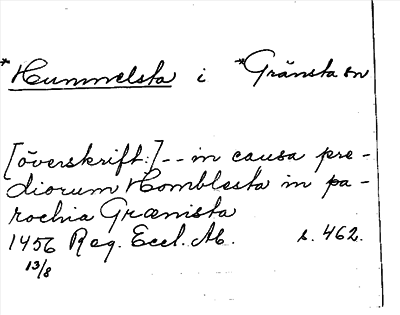 *Hummelsta i *Gränsta sn
[överskrift:] -- in causa pre-
diorum Homblesta in pa-
rochia Grænista
1456 Reg. Eccl. Ab. s. 462.
13/8